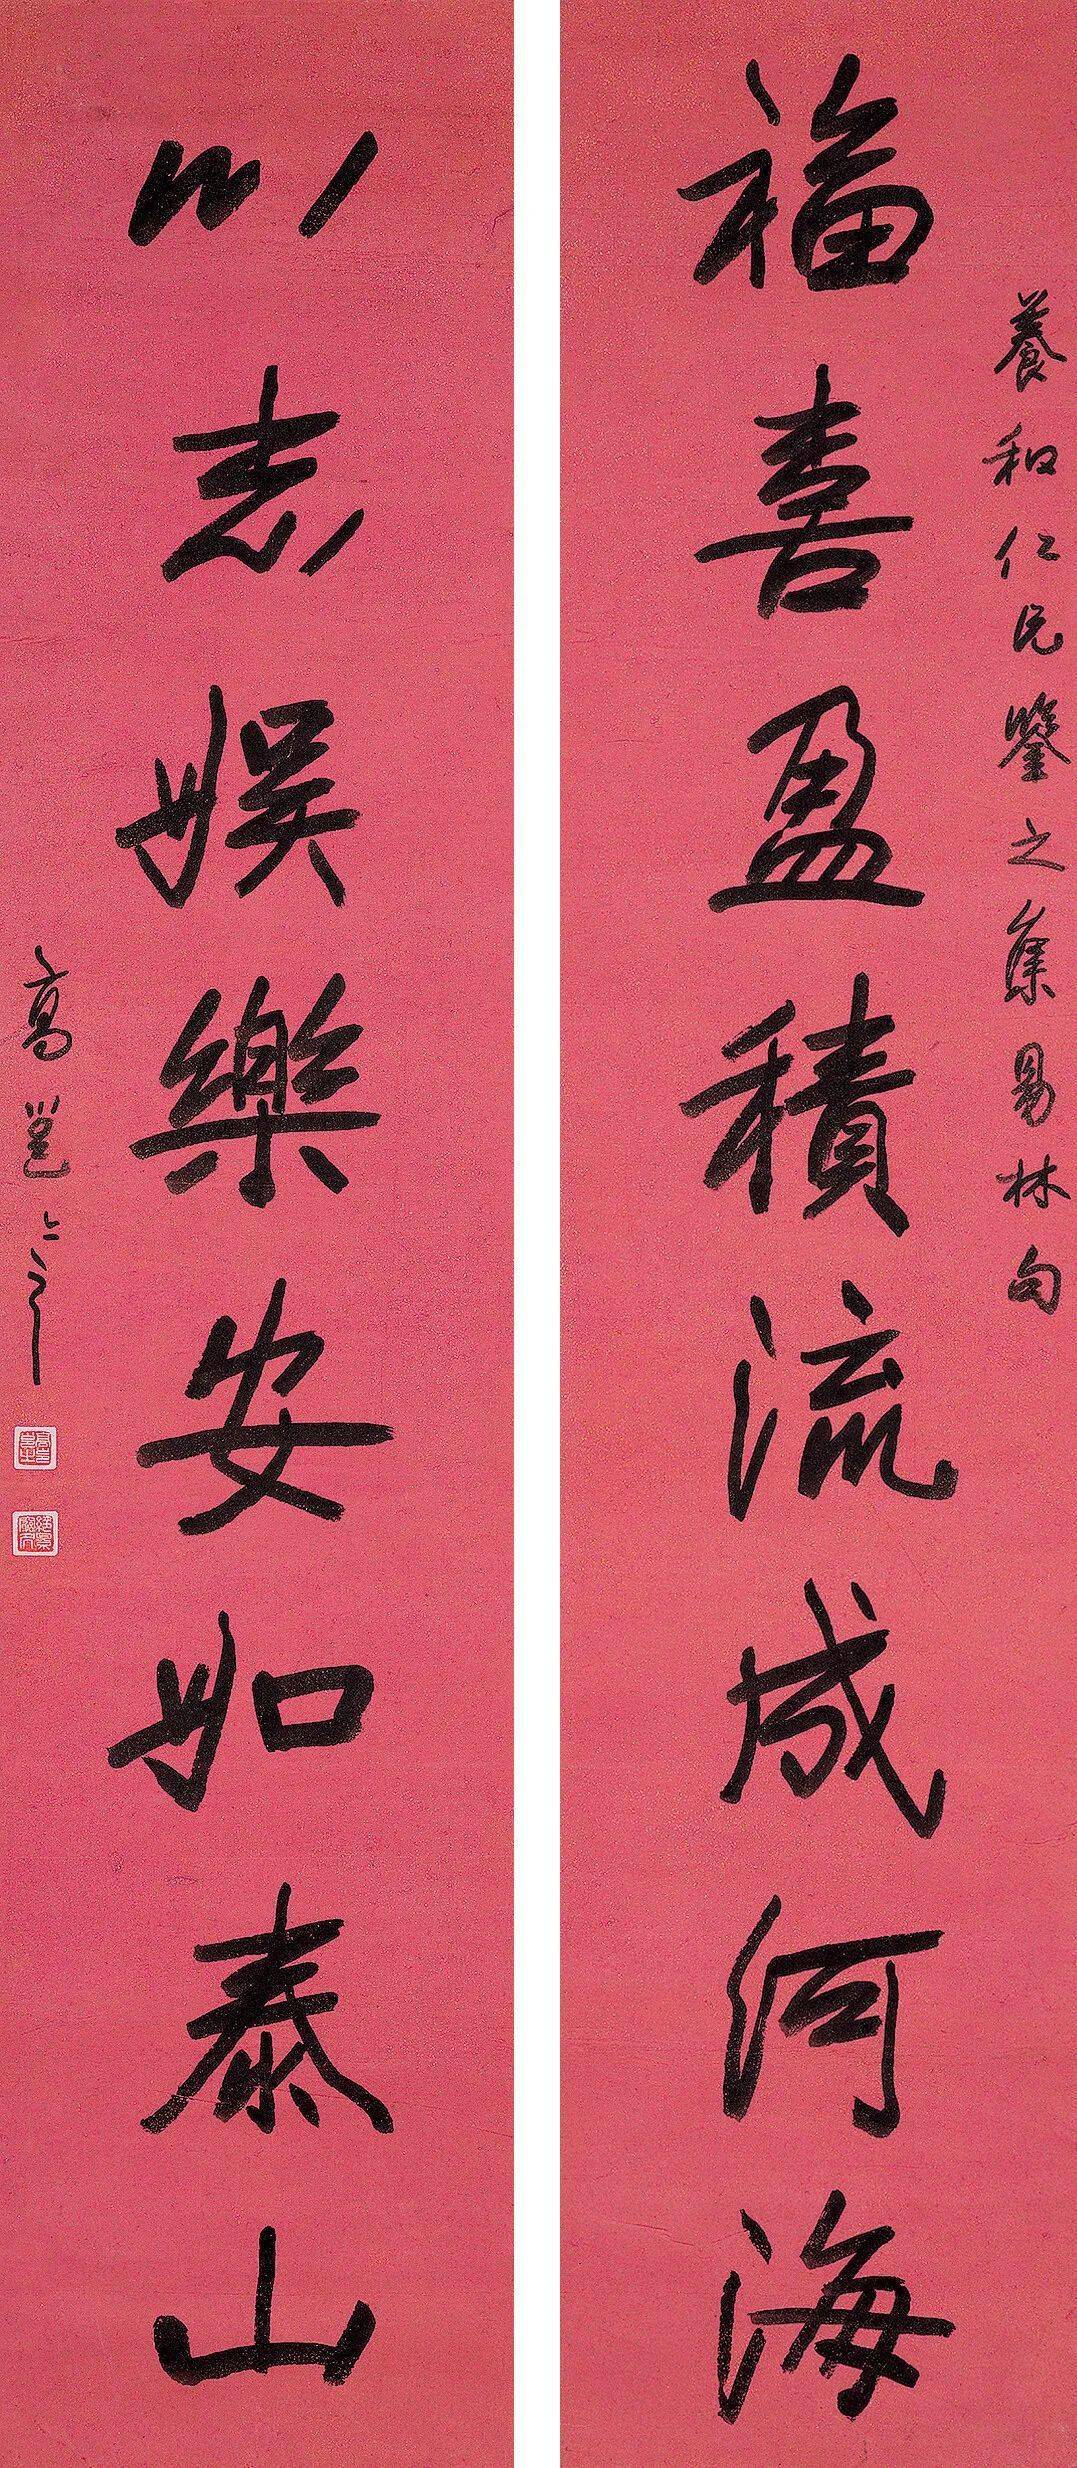 養和仁兄鑒之集易林句
福喜盈積流成河海
以志娛樂安如泰山
高邕